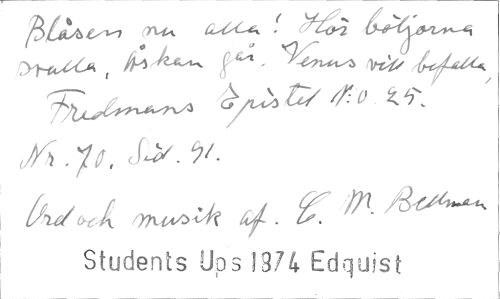 Blåsen nu alla! Hör böljorna
svalla, Åskan går. Venus vill befalla,
Fredmans Epistel N:o 25.
Nr. 70. Sid. 91.
Ord och musik af. C. M. Bellman
Students Ups 1874 Edquist